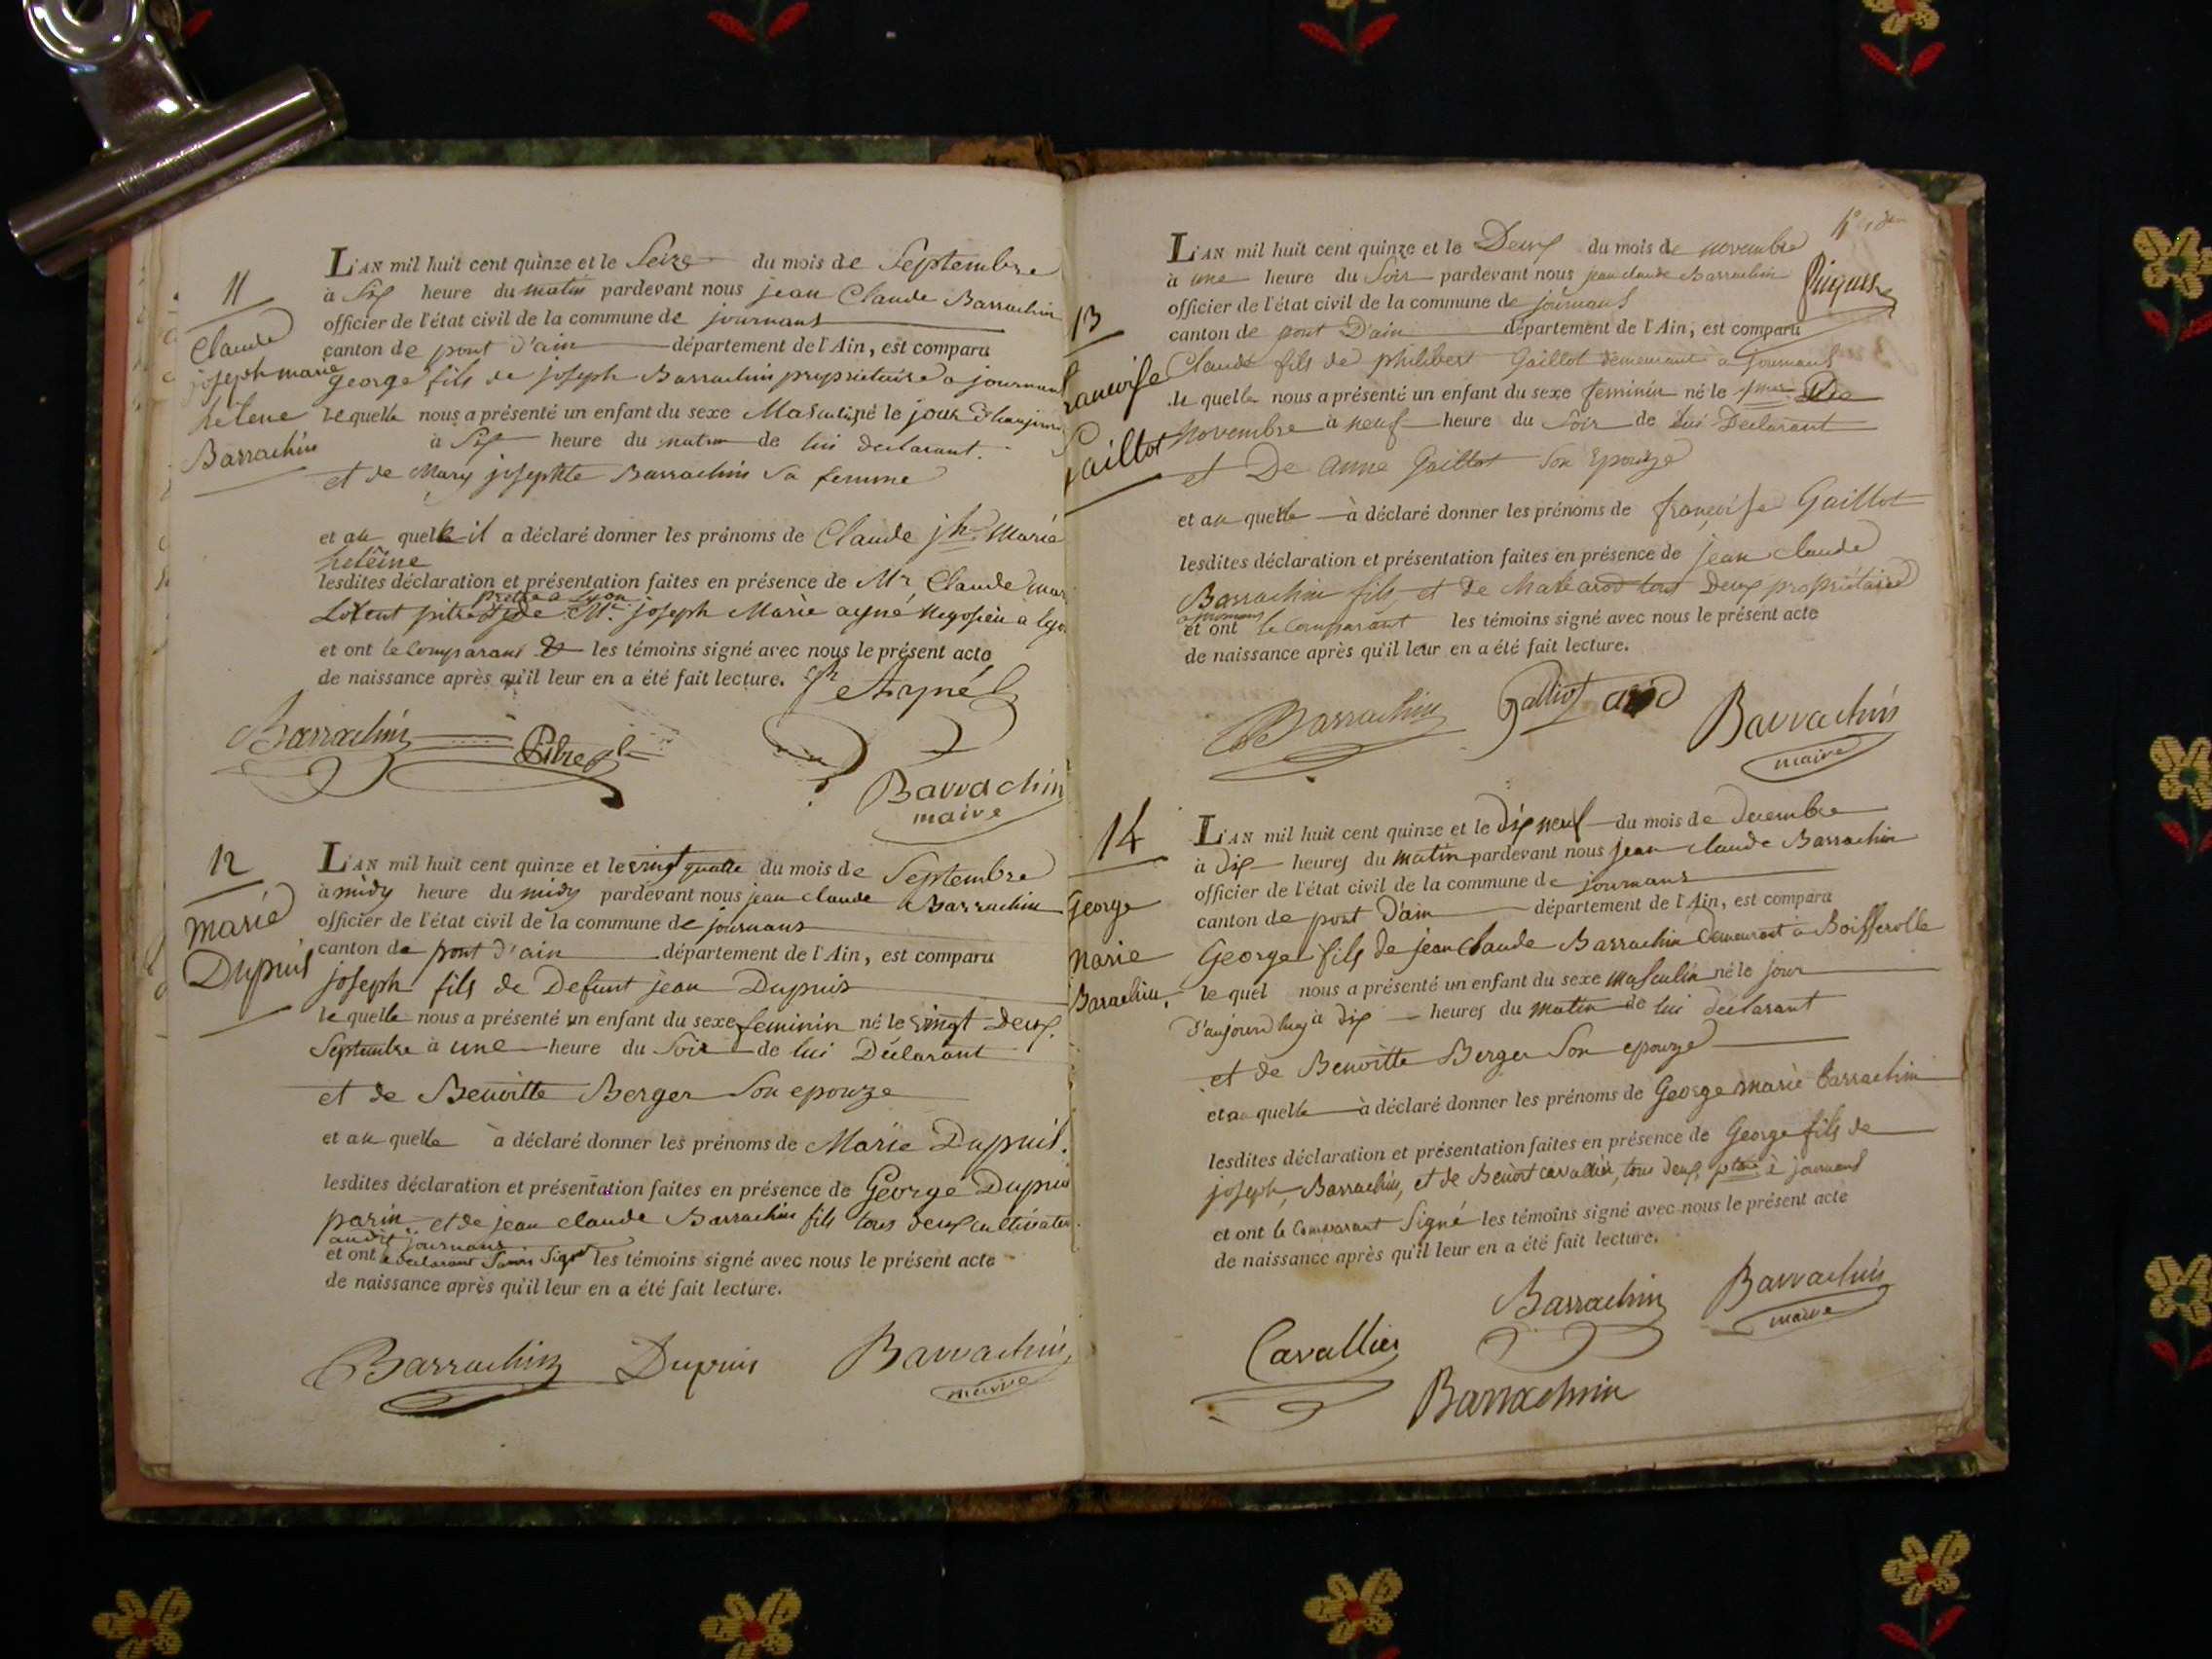 11
Claude
joseph marie
helene
Barrachin
L'AN mil huit cent quinze et le Seize du mois de Septembre
à Six heure du matin pardevant nous jean Claude Barrachin
officier de l'état civil de la commune de journans
canton de pont d'ain département de l'Ain, est comparu
george fils de joseph Barrachin propriétaire a journans
lequelle nous a présenté un enfant du sexe Masculin né le jour d'haujour
à Six heure du matin de lui declarant.
et de Mary josephte Barrachin Sa femme
et au quelle il a déclaré donner les prénoms de Claude jh Marie
heleine
lesdites déclaration et présentation faites en présence de Mr Claude
pretre a Lyon
de Mr. joseph Marie ayné negosien a
et ont le Comparant & les témoins signé avec nous le présent acte
de naissance après qu'il leur en a été fait lecture.
Jh Ayné
Barrachin Pitre
Barrachin
maire
12
Marie
Dupuis
L'AN mil huit cent quinze et le vingt quatre du mois de Septembre
à midy heure du midy pardevant nous jean claude Barrachin
officier de l'état civil de la commune de journans
canton de pont d'ain département de l'Ain, est comparu
joseph fils de Defunt jean Dupuis
le quelle nous a présenté un enfant du sexe feminin né le vingt Deux
Septembre à une heure du Soir de lui Déclarant
et de Benoitte Berger Son epouze
et au quelle à déclaré donner les prénoms de Marie Dupuis.
lesdites déclaration et présentation faites en présence de George Dupuis
parin et de jean claude Barrachin fils tous deux cultivateur
audit journans
et ont le declarant les témoins signé avec nous le présent acte
de naissance après qu'il leur en a été fait lecture.
Barrachin Dupuis Barrachin
maire
13
francoise
Gaillot
L'AN mil huit cent quinze et le Deux du mois de novembre
à une heure du Soir pardevant nous jean claude Barrachin
officier de l'état civil de la commune de journans
canton de pont D'ain département de l'Ain, est comparu
Claude fils de philibert Gaillot demeurant à Journans
le quelle nous a présenté un enfant du sexe feminin né le 1mer
novembre à neuf heure du Soir de Lui Declarant
et De anne Gaillot Son Epouze
et au quelle à déclaré donner les prénoms de françoise Gaillot
lesdites déclaration et présentation faites en présence de jean claude
Barrachin fils, et de Marc arod tous Deux propriétaire
a journans
et ont le Comparant les témoins signé avec nous le présent acte
de naissance après qu'il leur en a été fait lecture.
Barrachin Galliot arod Barrachin
maire
14
George
Marie
Barrachin.
L'AN mil huit cent quinze et le dix neuf du mois de decembre
à dix heures du matin pardevant nous jean claude Barrachin
officier de l'état civil de la commune de journans
canton de pont D'ain département de l'Ain, est comparu
George fils de jean Claude Barrachin demeurant a Boisserolle
le quel nous a présenté un enfant du sexe masculin né le jour
d'aujourd huy à dix heures du matin de lui declarant
et de Benoitte Berger Son epouze
et au quelle à déclaré donner les prénoms de George marie barrachin
lesdites déclaration et présentation faites en présence de George fils de
joseph Barrachin, et de Benoit cavallier, tous deux ptaire à journans
et ont le Comparant Signé les témoins signé avec nous le présent acte
de naissance après qu'il leur en a été fait lecture.
Barrachin Barrachin
maire
Cavallier
Barrachin